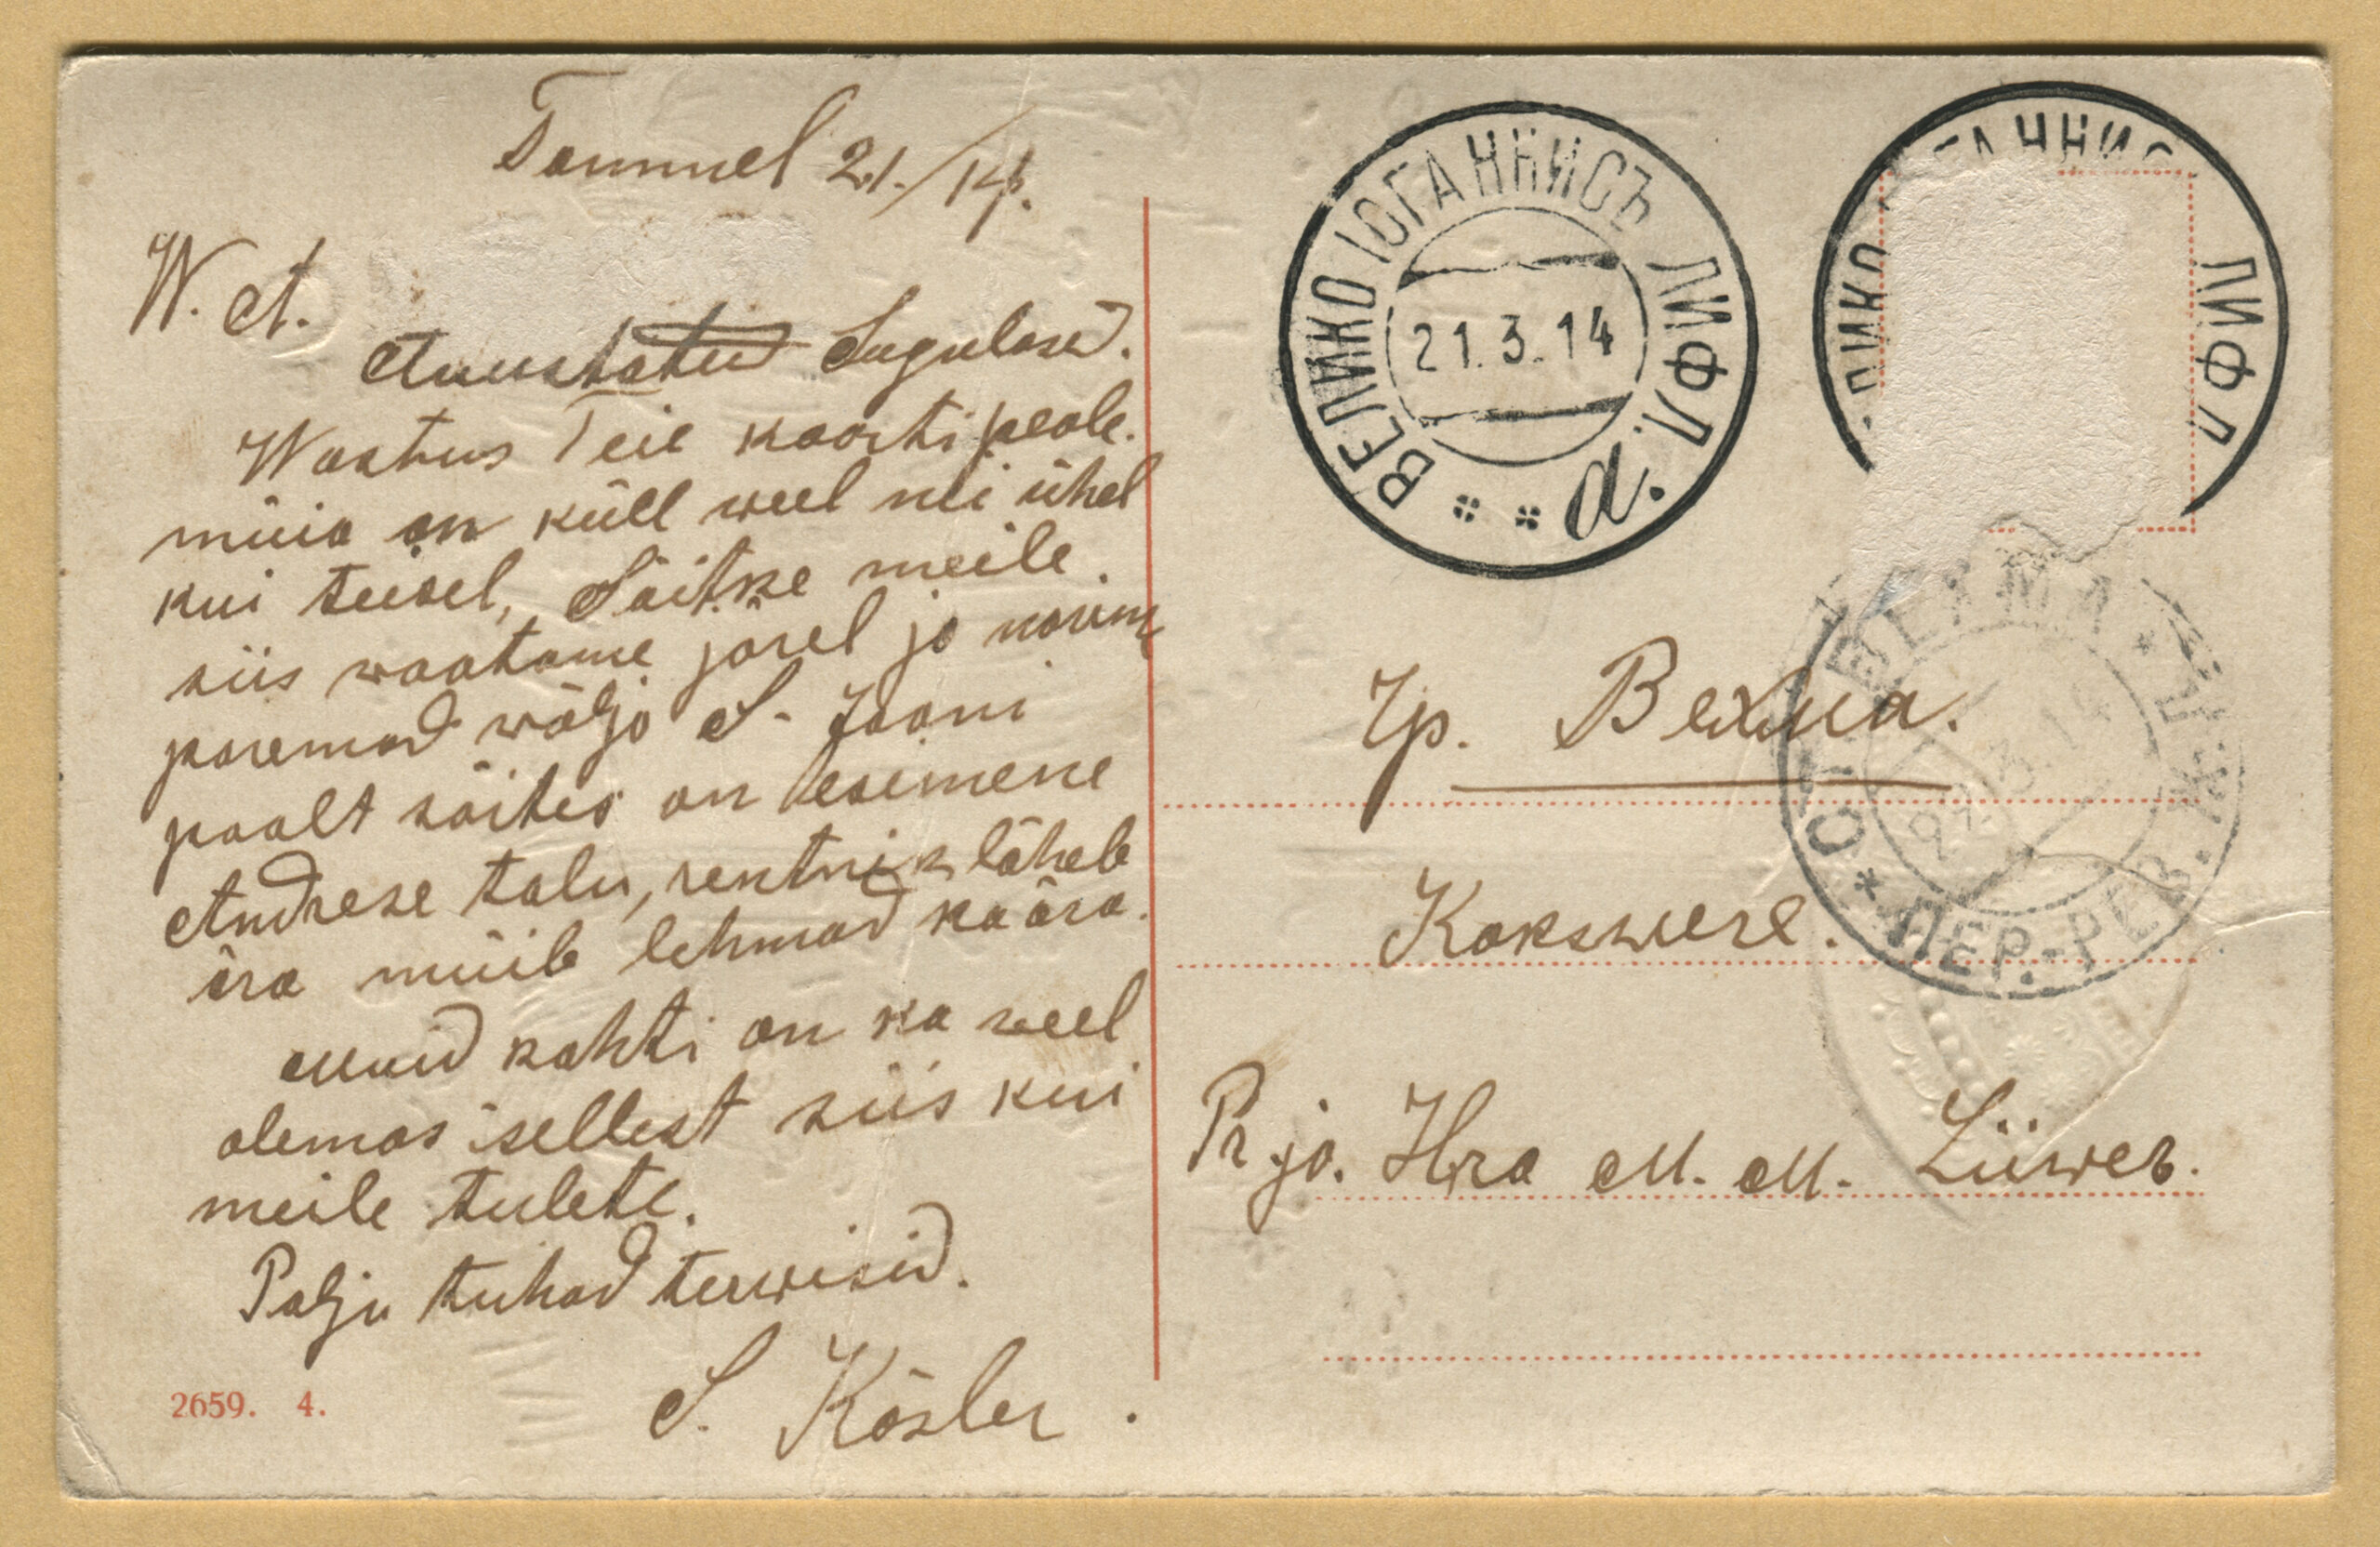 Tammel 21./14.
W. A.
Auustatud Sugulased.
Wastus Teie kaarti peale.
müia on küll weel nei ühel
kui teisel, Sõitke meile.
siis waatame järel ja
paremad wälja S. Jaani
poolt sõites on esimene
Andrese talu, rentnik läheb
ära müib lehmad ka ära.
Muid kohti on ka weel
olemas sellest siis kui
meile tulete.
Palju tuhad terwisid.
S. Kösler.
2659. 4.
ВЕЛИКО ІОГАННИСЪ ЛИФЛ.
21.3.14
а.
ЛИФЛ
СТ. ВЕХМА
ПЕР.-РЕВ. Ж.
Вехма.
Kokswere.
Pr ja. Hra M. M. Liiwer.